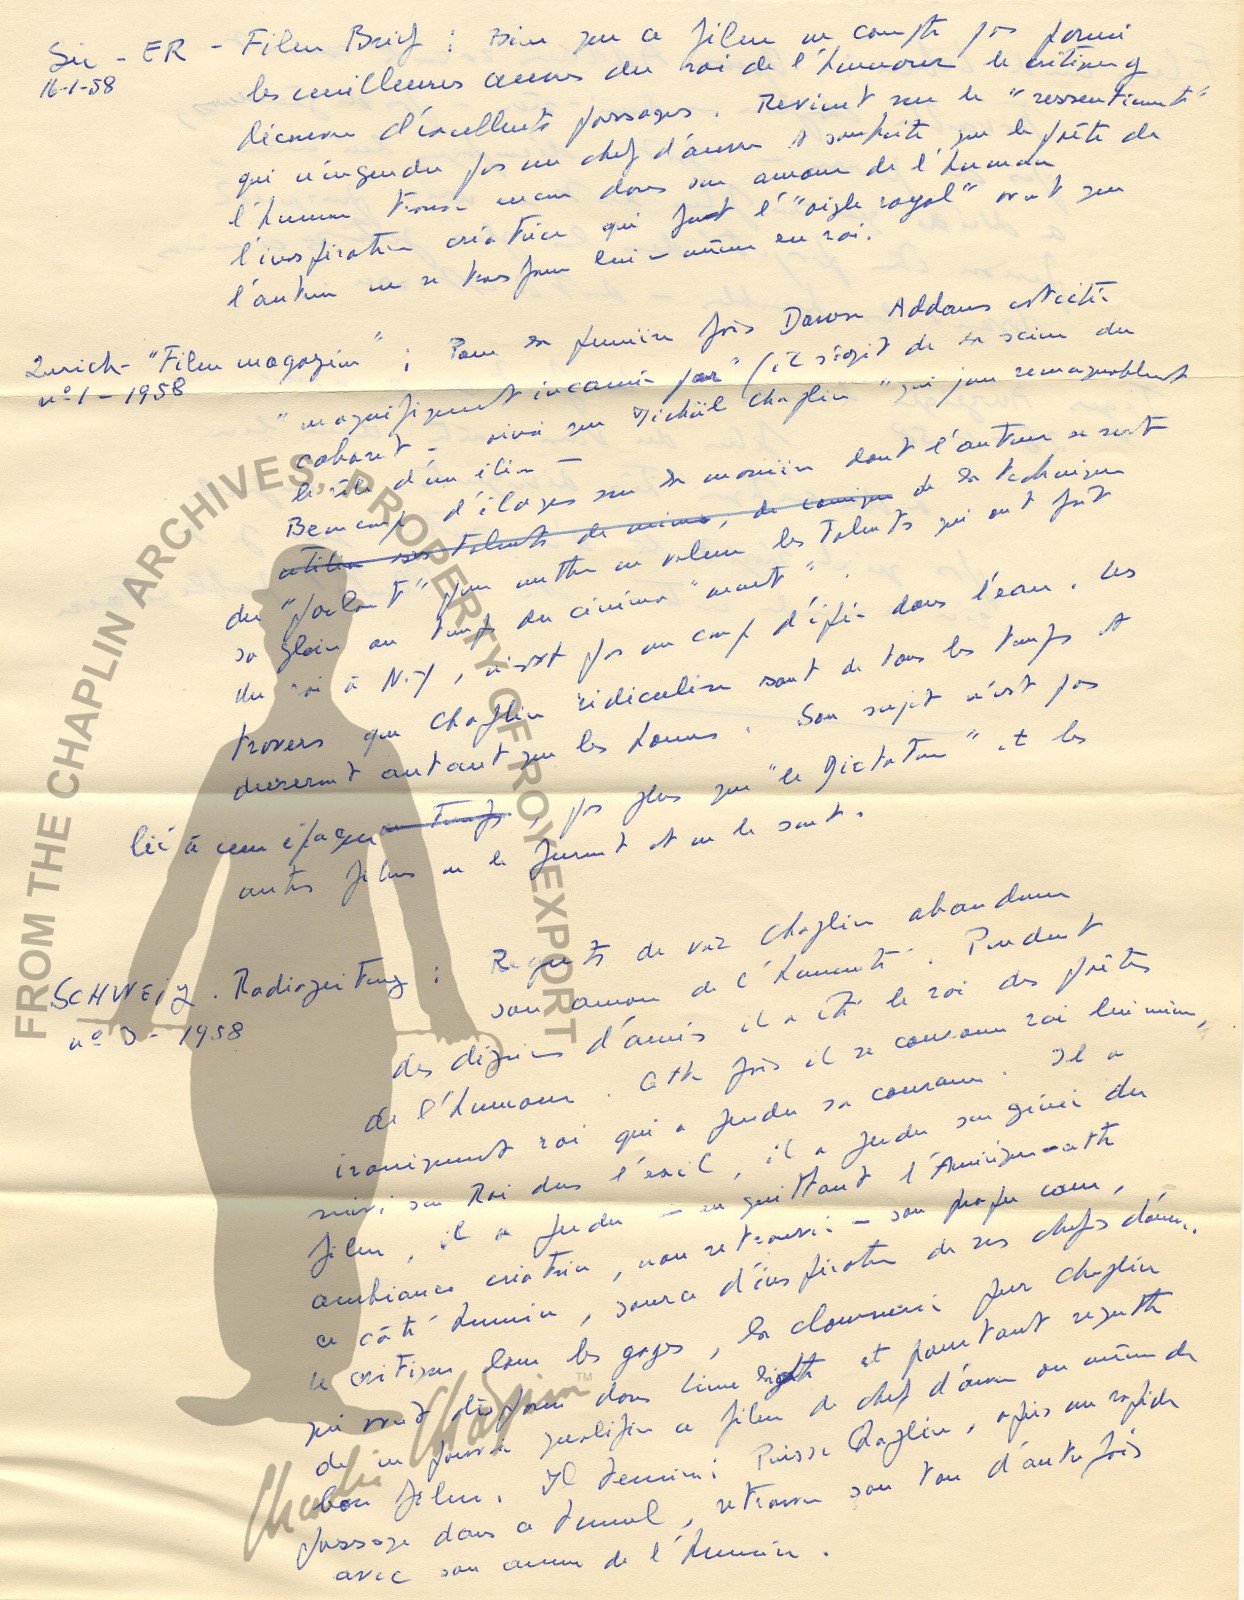 Sie - ER - Film Brief : Bien que ce film ne compte pas parmi
16-1-58
les meilleures œuvres du roi de l'humour le critique y
découvre d'excellents passages. Revient sur le "ressentiment"
qui n'engendre pas un chef d'œuvre et souhaite que le poète de
l'humour trouve encore dans son amour de l'humain
l'inspiration créatrice qui fut l'"aigle royal" avant que
l'auteur ne se transforme lui-même en roi.
Zurich - "Film magazin" : Pour la première fois Dawn Addams est citée
n° 1 - 1958
"magnifiquement incarnée par" (il s'agit de la scène du
cabaret - ainsi que Michaël Chaplin "qui joue remarquablement
le rôle d'un élève -
Beaucoup d'éloges sur la manière dont l'auteur se sert
utilise ses talents de mime, de comique de la technique
du "parlant" pour mettre en valeur les talents qui ont fait
sa gloire au temps du cinéma "muet".
du roi à N.Y, n'est pas un coup d'épée dans l'eau. Les
travers que Chaplin ridiculise sont de tous les temps et
dureront autant que les hommes. Son sujet n'est pas
lié à une époque au temps, pas plus que "le Dictateur" et les
autres films ne le furent et ne le sont.
SCHWEIZ. Radiozeitung : Regrets de voir Chaplin abandonner
n° 3 - 1958
son amour de l'humanité. Pendant
des dizaines d'années il a été le roi des poètes
de l'humour. Cette fois il se couronne roi lui même,
ironiquement roi qui a perdu sa couronne. Il a
suivi son Roi dans l'exil, il a perdu son génie du
film, il a perdu - en quittant l'Amérique - cette
ambiance créatrice, non retrouvée - son propre cœur,
ce côté humain, source d'inspiration de ses chefs d'œuvre.
Le critique loue les gags, la clownerie pure Chaplin
qui avait disparu dans Limelight et pourtant regrette
de ne pouvoir qualifier ce film de chef d'œuvre ou même de
bon film. Il termine : Puisse Chaplin, après un rapide
passage dans ce tunnel, retrouver son ton d'autrefois
avec son amour de l'humain.
FROM THE CHAPLIN ARCHIVES, PROPERTY OF ROY EXPORT
Charlie Chaplin™